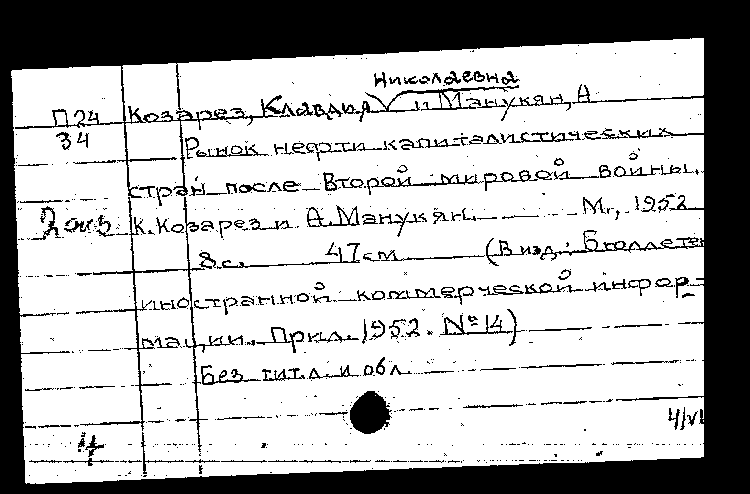 Николаевна
П24 Козарез, Клавдия и Манукян, А
34 Рынок нефти капиталистических
стран после Второй мировой войны.
2 экз К. Козарез и А. Манукян. М., 1952
8 с. 47 см (В изд.: Бюллетен
иностранной коммерческой инфор-
мации. Прил. 1952. № 14)
Без тит. л. и обл.
4/VI
4